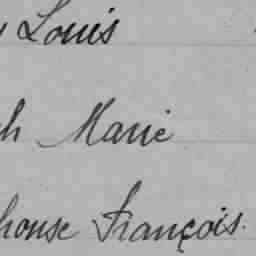 Louis
h Marie
honse François.